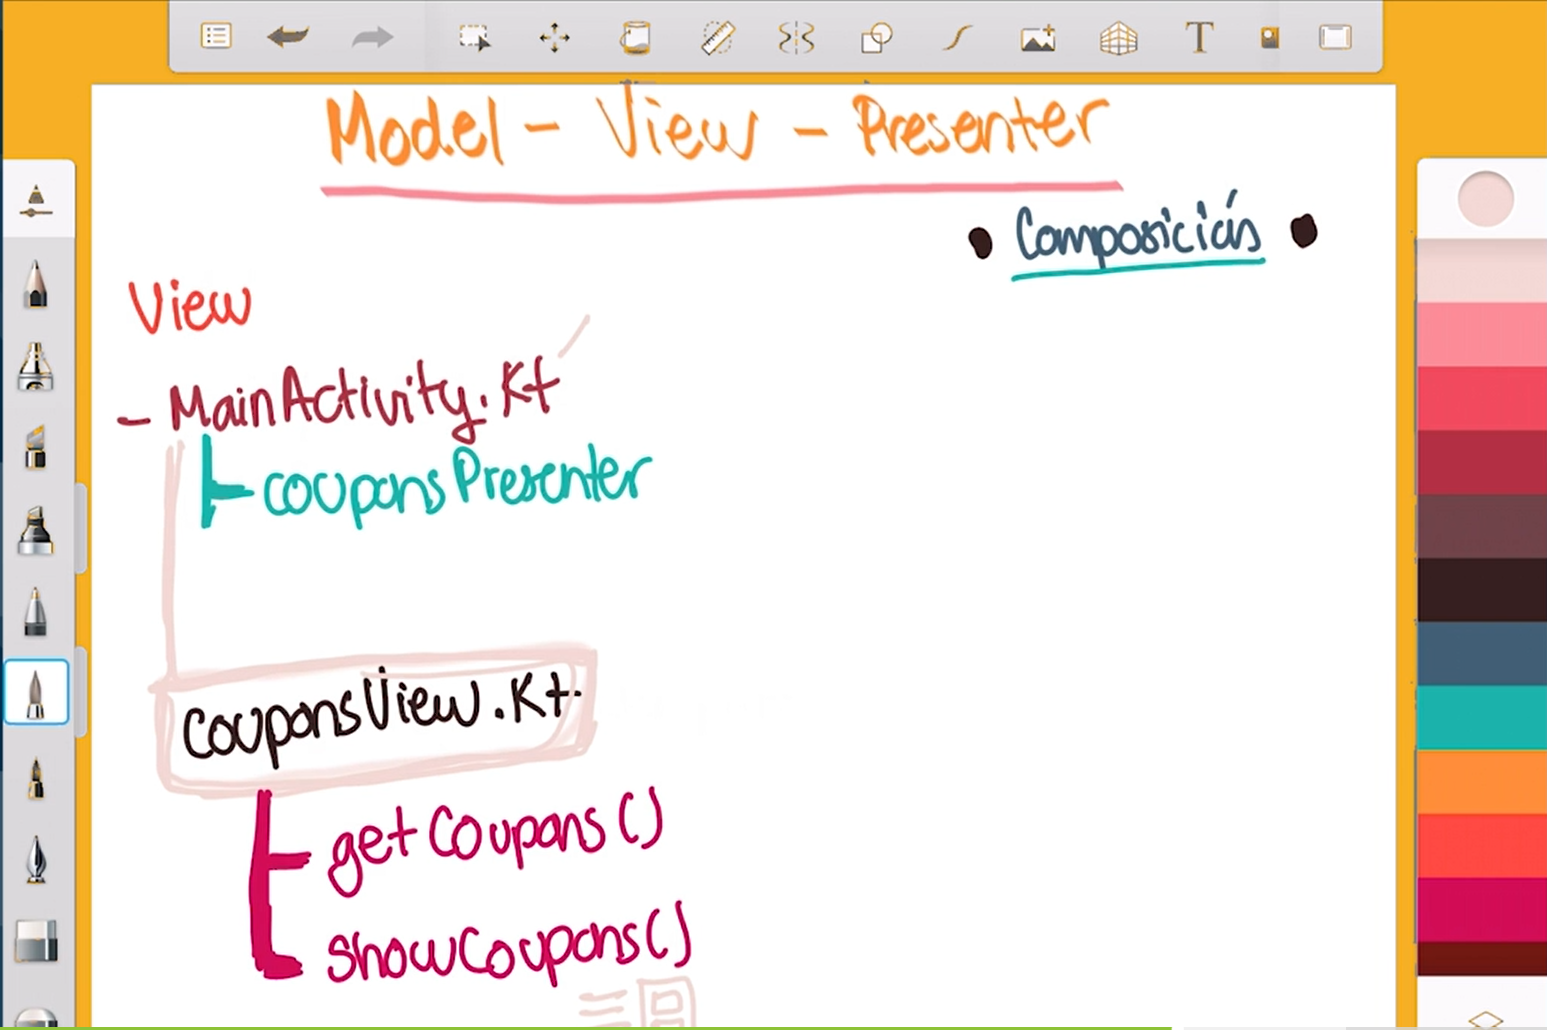 Model - View - Presenter
• Composición •
View
- MainActivity.kt
couponsPresenter
CouponsView.kt
getCoupons()
showCoupons()